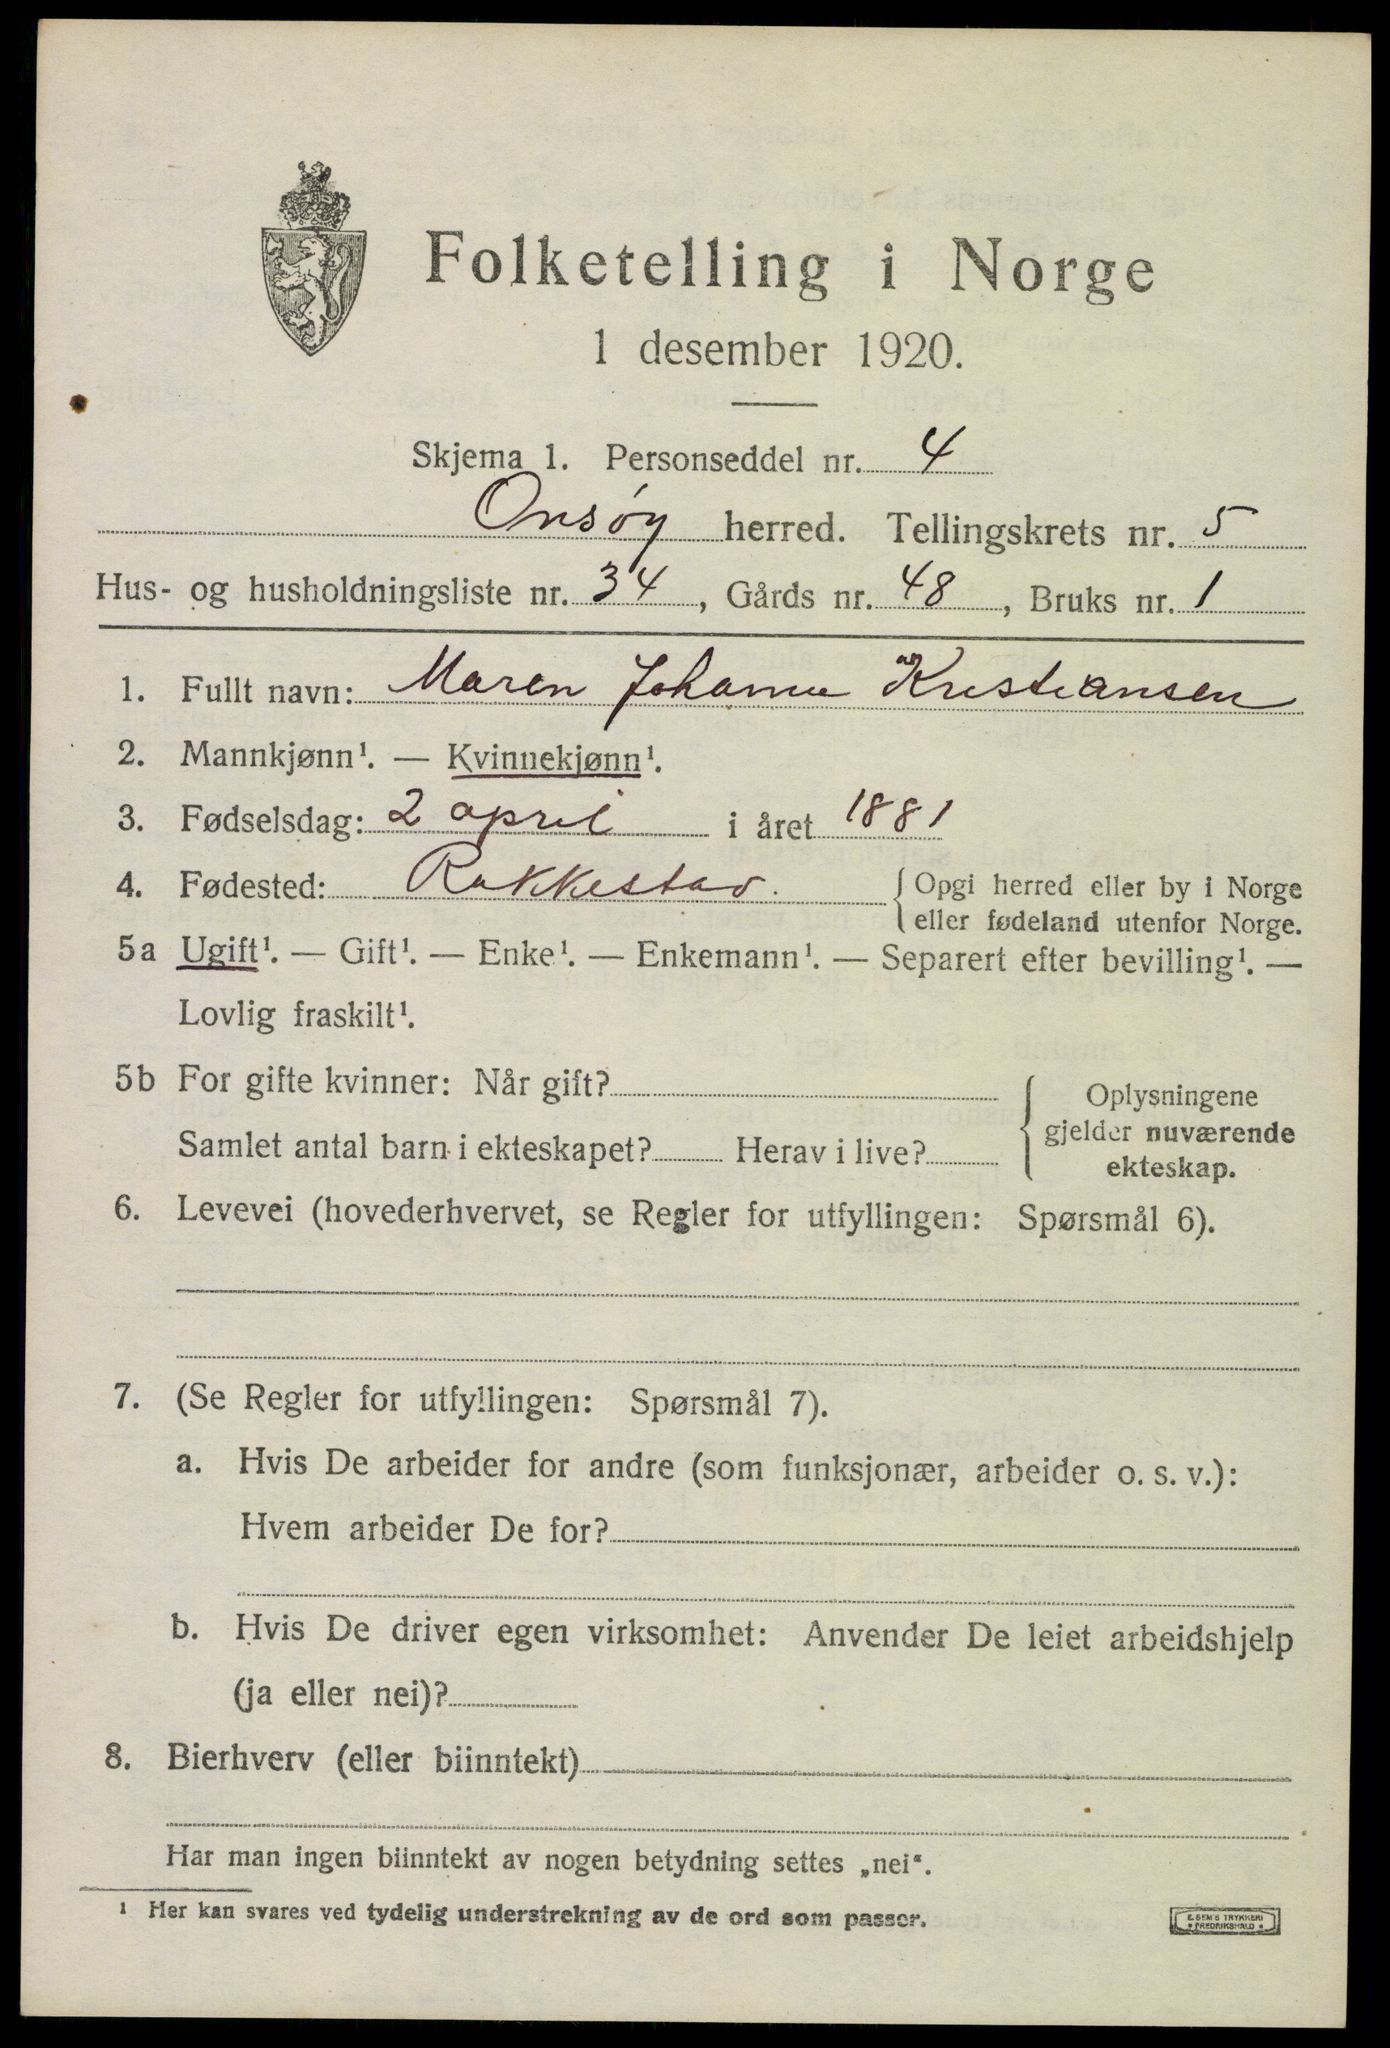 Folketelling i Norge
1 desember 1920.
Skjema 1. Personseddel nr. 4
Onsøy herred. Tellingskrets nr. 5
Hus- og husholdningsliste nr. 34, Gårds nr. 48, Bruks nr. 1
1. Fullt navn: Maren Johanne Kristiansen
2. Mannkjønn¹. — Kvinnekjønn¹.
3. Fødselsdag: 2 april i året 1881
4. Fødested: Rakkestad. Opgi herred eller by i Norge
eller fødeland utenfor Norge.
5a Ugift¹. — Gift¹. — Enke¹. — Enkemann¹. — Separert efter bevilling¹. —
Lovlig fraskilt¹.
5b For gifte kvinner: Når gift?
Samlet antal barn i ekteskapet? Herav i live?
Oplysningene
gjelder nuværende
ekteskap.
6. Levevei (hovederhvervet, se Regler for utfyllingen: Spørsmål 6).
7. (Se Regler for utfyllingen: Spørsmål 7).
a. Hvis De arbeider for andre (som funksjonær, arbeider o. s. v.):
Hvem arbeider De for?
b. Hvis De driver egen virksomhet: Anvender De leiet arbeidshjelp
(ja eller nei)?
8. Bierhverv (eller biinntekt)
Har man ingen biinntekt av nogen betydning settes „nei“.
¹ Her kan svares ved tydelig understrekning av de ord som passer.
E. SEM'S TRYKKERI
FREDRIKSHALD